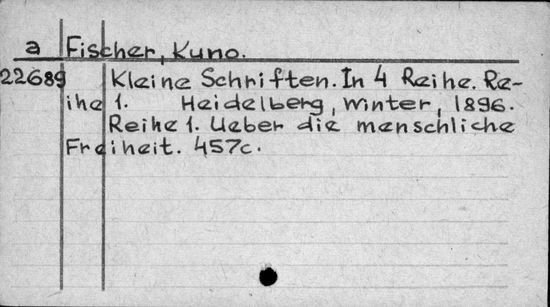 a Fischer, Kuno.
22689 Kleine Schriften. In 4 Reihe. Re-
ihe 1. Heidelberg, Winter, 1896.
Reihe 1. Ueber die menschliche
Freiheit. 457c.